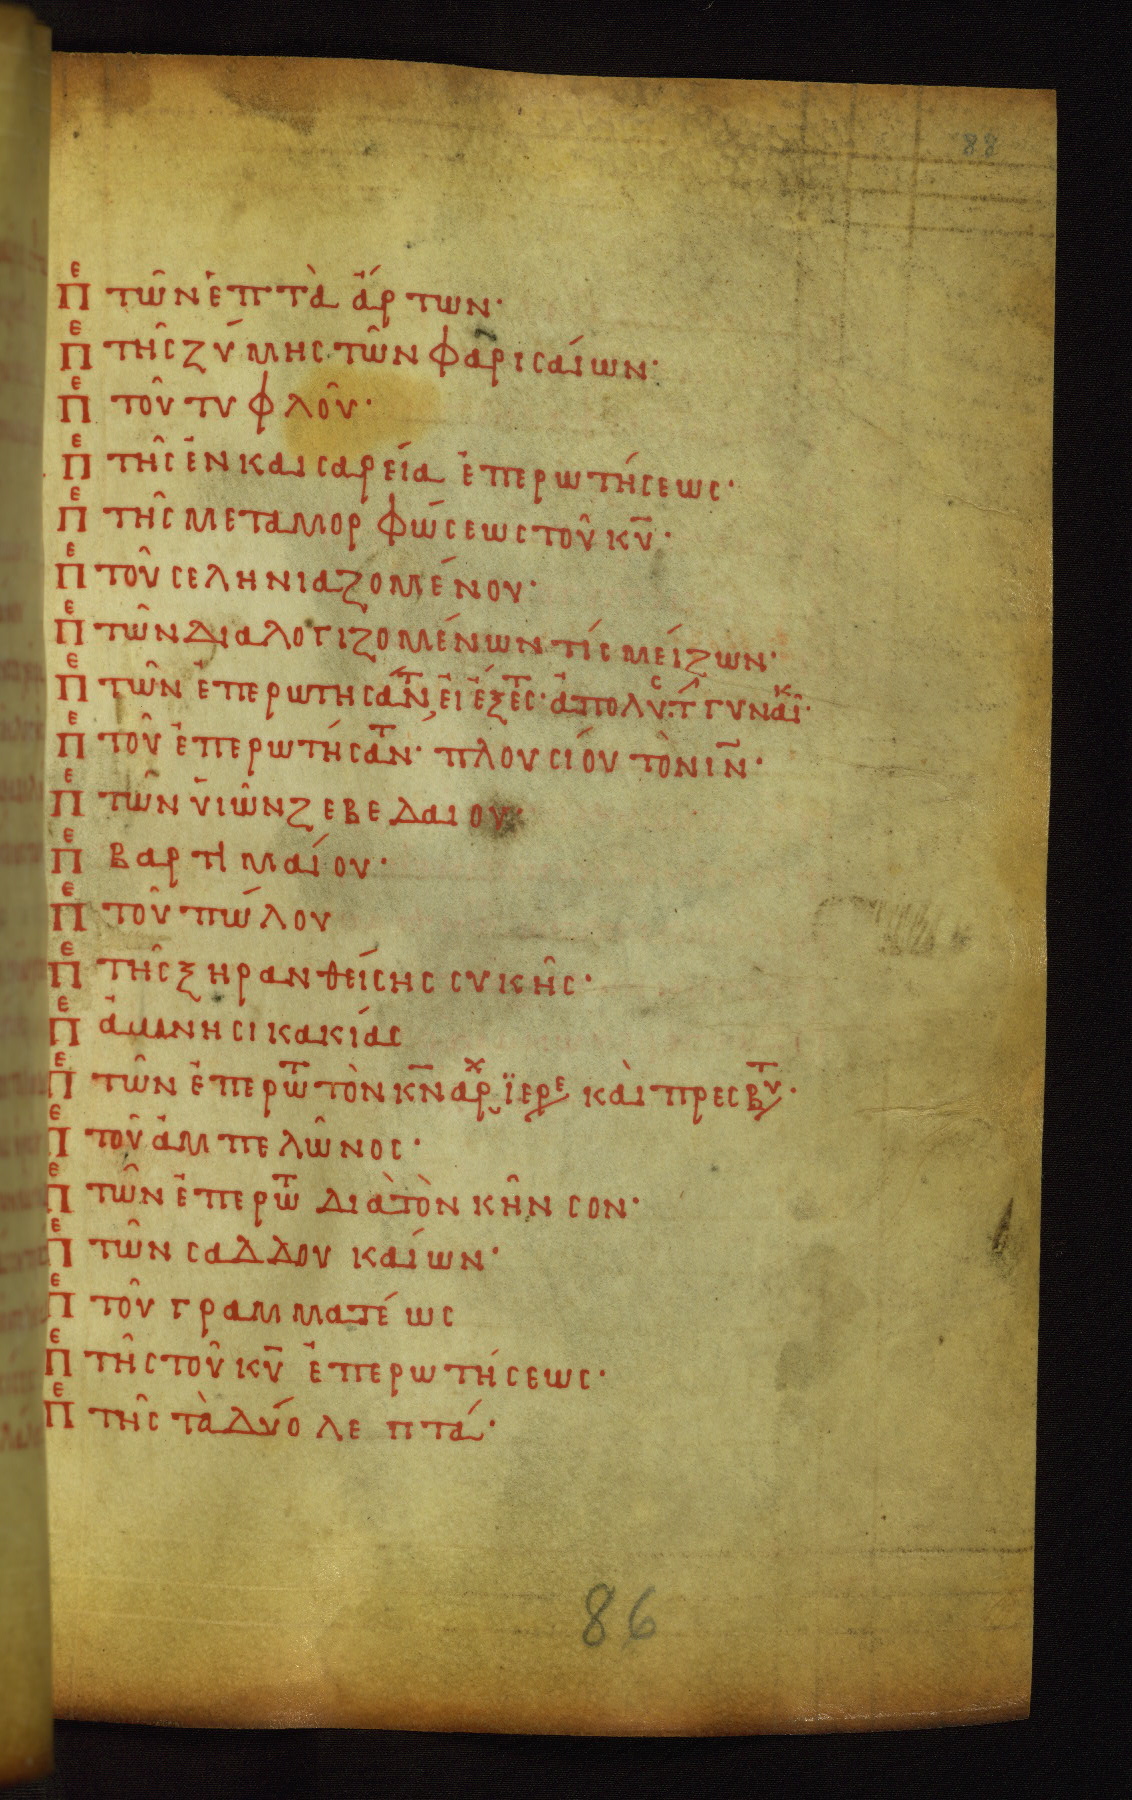 88
Πε τῶν ἑπτὰ ἄρτων·
Πε τῆς ζύμης τῶν φαρισαίων·
Πε τοῦ τυφλοῦ·
Πε τῆς ἐν καισαρεία ἐπερωτήσεως·
Πε τῆς μεταμορφώσεως τοῦ κ̅υ̅·
Πε τοῦ σεληνιαζομένου·
Πε τῶν διαλογιζομένων τίς μείζων·
Πε τῶν ἐπερωτησάντ, εἰ ἔξεστ· ἀπολῦσ τ γυναῖκ·
Πε τοῦ ἐπερωτήσαντ· πλουσίου τὸν ι̅ν̅·
Πε τῶν υἱῶν ζεβεδαιου·
Πε βαρτιμαίου·
Πε τοῦ πώλου
Πε τῆς ξηρανθείσης συκῆς·
Πε ἀμνησικακίας
Πε τῶν ἐπερωτ τὸν κ̅ν̅ ἀρχιερε καὶ πρεσβυτ·
Πε τοῦ ἀμπελῶνος·
Πε τῶν ἐπερωτ διὰ τὸν κῆνσον·
Πε τῶν σαδδουκαίων·
Πε τοῦ γραμματέως
Πε τῆς τοῦ κ̅υ̅ ἐπερωτήσεως·
Πε τῆς τὰ δύο λεπτά·
86